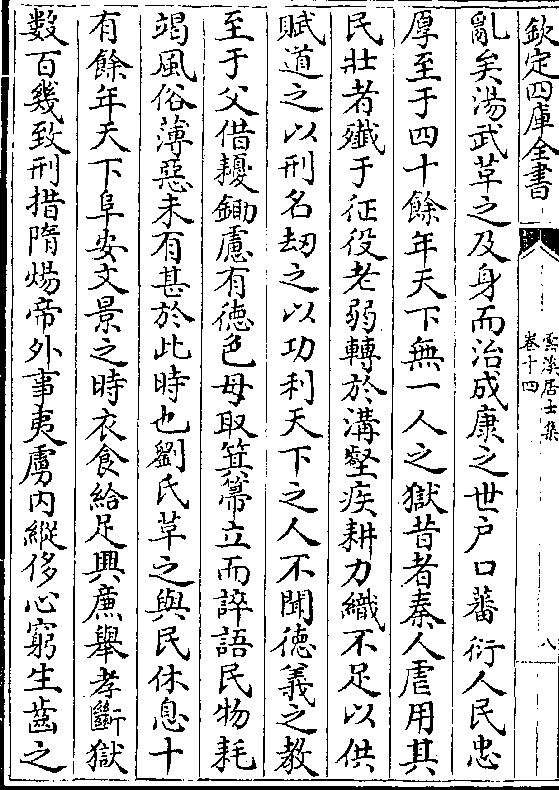 欽定四庫全書
雲溪居士集
卷十四
八
亂矣湯武革之及身而治成康之世户口蕃衍人民忠
厚至于四十餘年天下無一人之獄昔者秦人虐用其
民壯者殲于征役老弱轉於溝壑疾耕力織不足以供
賦道之以刑名刼之以功利天下之人不聞徳義之教
至于父借耰鋤慮有徳色母取箕箒立而誶語民物耗
竭風俗薄惡未有甚於此時也劉氏革之與民休息十
有餘年天下阜安文景之時衣食給足興亷舉孝斷獄
數百幾致刑措隋煬帝外事夷虜内縱侈心窮生齒之